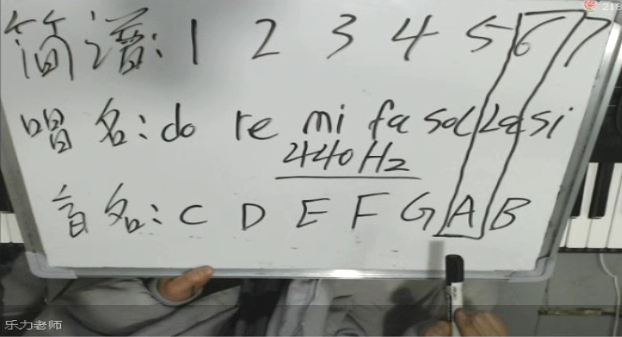 简谱: 1 2 3 4 5 6 7
唱名: do re mi fa sol la si
440Hz
音名: C D E F G A B
乐力老师